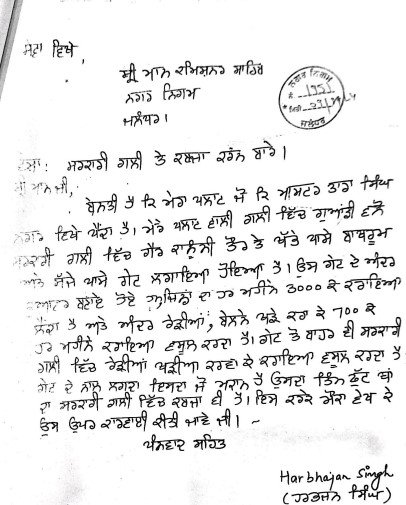 ਸੇਵਾ ਵਿਖੇ,
ਸ਼੍ਰੀ ਮਾਨ ਕਮਿਸ਼ਨਰ ਸਾਹਿਬ
ਨਗਰ ਨਿਗਮ
ਜਲੰਧਰ।
ਨਗਰ ਨਿਗਮ
1951
ਮਿਤੀ
ਜਲੰਧਰ
ਵਿਸ਼ਾ: ਸਰਕਾਰੀ ਗਲੀ ਤੇ ਕਬਜਾ ਕਰਨ ਬਾਰੇ।
ਸ਼੍ਰੀ ਮਾਨ ਜੀ,
ਬੇਨਤੀ ਹੈ ਕਿ ਮੇਰਾ ਪਲਾਟ ਜੋ ਕਿ ਮਾਸਟਰ ਤਾਰਾ ਸਿੰਘ
ਨਗਰ ਵਿਖੇ ਪੈਂਦਾ ਹੈ। ਮੇਰੇ ਪਲਾਟ ਵਾਲੀ ਗਲੀ ਵਿੱਚ ਗੁਆਂਢੀ ਵਲੋਂ
ਸਰਕਾਰੀ ਗਲੀ ਵਿੱਚ ਗੈਰ ਕਾਨੂੰਨੀ ਤੌਰ ਤੇ ਖੱਬੇ ਪਾਸੇ ਬਾਥਰੂਮ
ਅਤੇ ਸੱਜੇ ਪਾਸੇ ਗੇਟ ਲਗਾਇਆ ਹੋਇਆ ਹੈ। ਉਸ ਗੇਟ ਦੇ ਅੰਦਰ
ਕੁਆਟਰ ਬਣਾਏ ਹੋਏ ਜਿਨ੍ਹਾਂ ਦਾ ਹਰ ਮਹੀਨੇ 3000 ਰੁ ਕਰਾਇਆ
ਲੈਂਦਾ ਹੈ ਅਤੇ ਅੰਦਰ ਰੇੜੀਆਂ, ਵੇਲਣੇ ਖੜੇ ਕਰ ਕੇ 700 ਰੁ
ਹਰ ਮਹੀਨੇ ਕਰਾਇਆ ਵਸੂਲ ਕਰਦਾ ਹੈ। ਗੇਟ ਤੋਂ ਬਾਹਰ ਵੀ ਸਰਕਾਰੀ
ਗਲੀ ਵਿੱਚ ਰੇੜੀਆਂ ਖੜੀਆ ਕਰਵਾ ਕੇ ਕਰਾਇਆ ਵਸੂਲ ਕਰਦਾ ਹੈ
ਗੇਟ ਦੇ ਨਾਲ ਲਗਦਾ ਇਸਦਾ ਜੋ ਮਕਾਨ ਹੈ ਉਸਦਾ ਤਿੰਨ ਫੁੱਟ ਥਾਂ
ਦਾ ਸਰਕਾਰੀ ਗਲੀ ਵਿੱਚ ਕਬਜਾ ਵੀ ਹੈ। ਇਸ ਕਰਕੇ ਮੌਕਾ ਦੇਖ ਕੇ
ਉਸ ਉਪਰ ਕਾਰਵਾਈ ਕੀਤੀ ਜਾਵੇ ਜੀ।
ਧੰਨਵਾਦ ਸਹਿਤ
Harbhajan Singh
(ਹਰਭਜਨ ਸਿੰਘ)